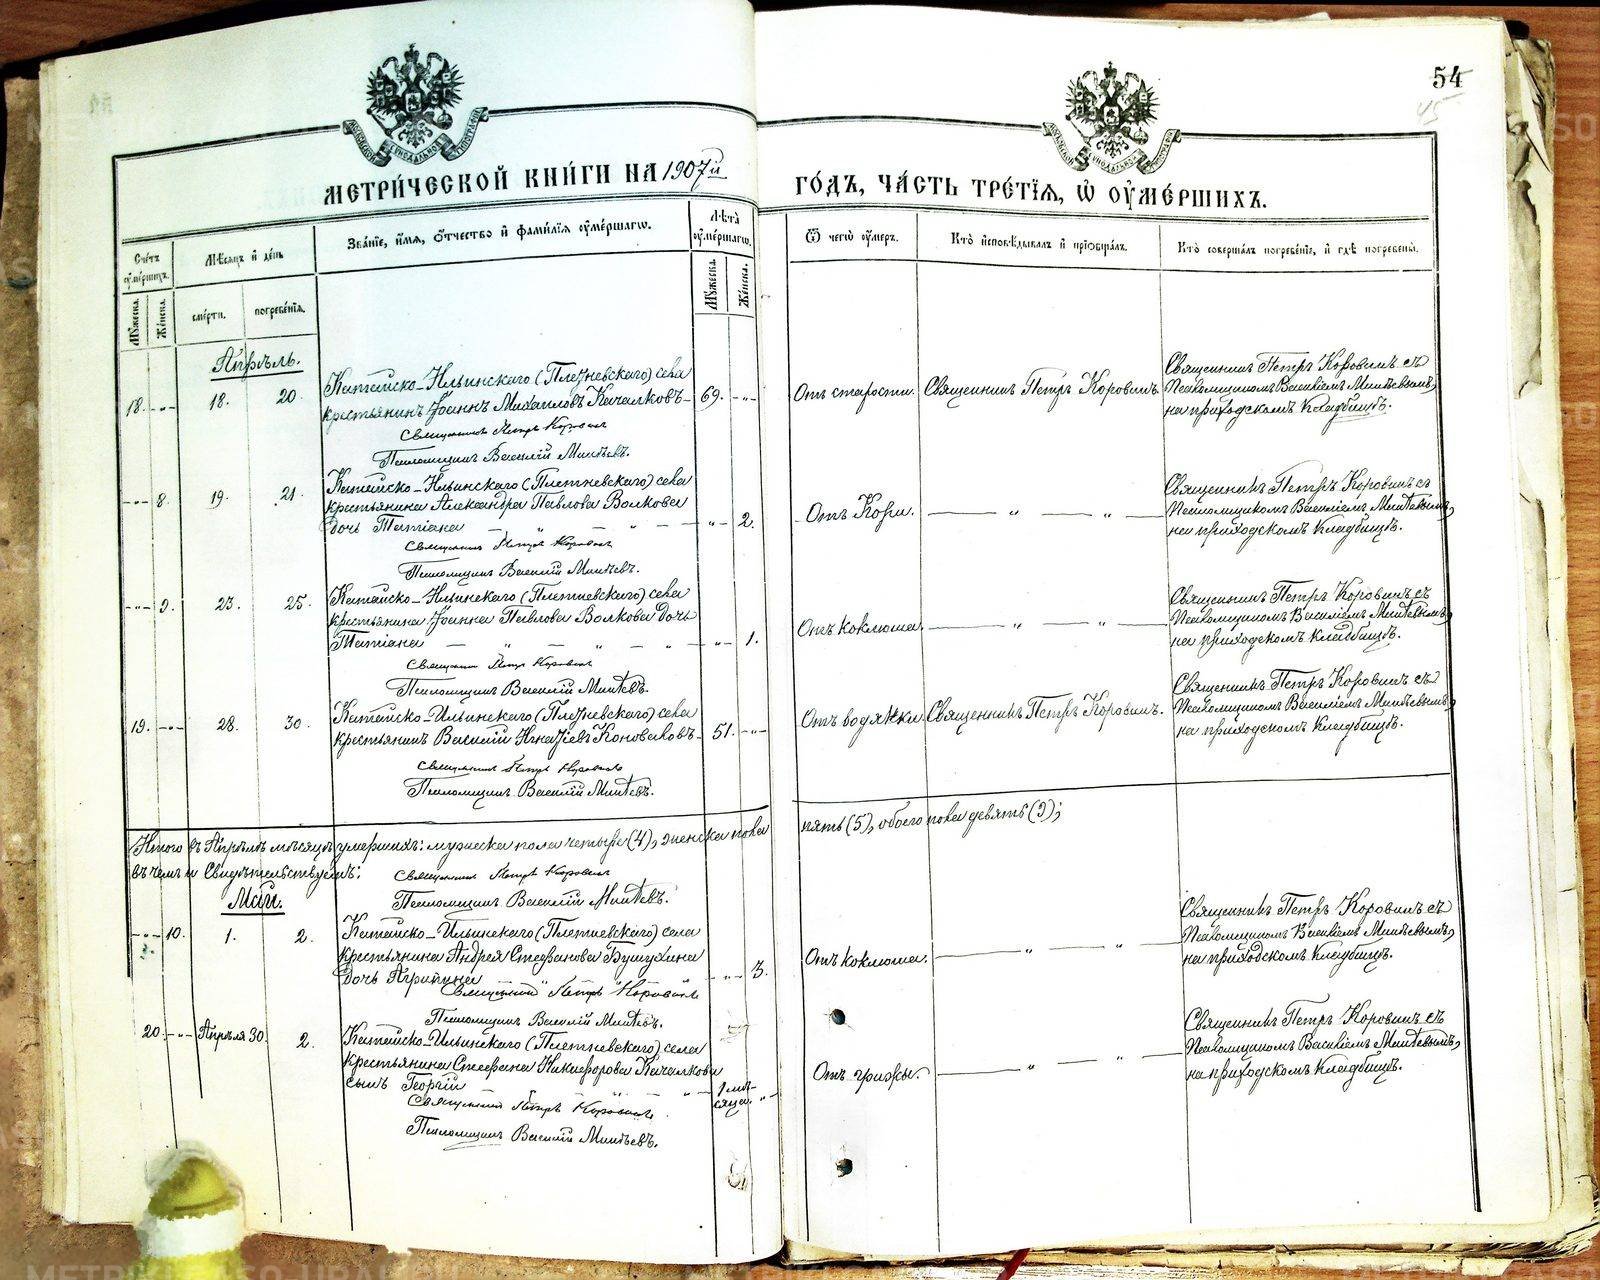 54
45
МОСКОВСКОЙ СѴНОДАЛЬНОЙ ТИПОГРАФІИ
МОСКОВСКОЙ СѴНОДАЛЬНОЙ ТИПОГРАФІИ
МЕТРИ́ЧЕСКОЙ КНИ́ГИ НА 1907й
ГО́ДЪ, ЧА́СТЬ ТРЕ́ТІѦ, Ѡ҆ ОУ҆МЕ́РШИХЪ.
Сче́тъ оу҆ме́ршихъ.
Мѣ́сѧцъ и҆ де́нь
Зва́нїе, и҆́мѧ, ѻ҆́тчество и҆ фами́лїѧ оу҆ме́ршагѡ.
Лѣ́та оу҆ме́ршагѡ.
Ѿ чегѡ̀ оу҆́меръ.
Кто̀ и҆сповѣ́дывалъ и҆ прїѡбща́лъ.
Кто̀ соверша́лъ погребе́нїе, и҆ гдѣ̀ погребены̀.
Мꙋ́жеска.
Же́нска.
сме́рти.
погребе́нїѧ.
Мꙋ́жеска.
Же́нска.
Апрѣль.
18. -"- 18. 20.
Катайско-Ильинскаго (Плетневскаго) села
крестьянинъ Іоаннъ Михаиловъ Качалковъ- 69. -"-
Священникъ Петръ Коровинъ
Псаломщикъ Василій Минѣевъ.
Отъ старости. Священникъ Петръ Коровинъ.
Священникъ Петръ Коровинъ съ
Псаломщикомъ Василіемъ Минѣевымъ,
на приходскомъ кладбищѣ.
-"- 8. 19. 21.
Катайско-Ильинскаго (Плетневскаго) села
крестьянина Александра Павлова Волкова
дочь Татіана — " — " — " — -"- 2.
Священникъ Петръ Коровинъ
Псаломщикъ Василій Минѣевъ.
Отъ Кори. — " — " —
Священникъ Петръ Коровинъ съ
Псаломщикомъ Василіемъ Минѣевымъ,
на приходскомъ кладбищѣ.
-"- 9. 23. 25.
Катайско-Ильинскаго (Плетневскаго) села
крестьянина Іоанна Павлова Волкова дочь
Татіана — " — " — " — -"- 1.
Священникъ Петръ Коровинъ
Псаломщикъ Василій Минѣевъ.
Отъ коклюша. — " — " —
Священникъ Петръ Коровинъ съ
Псаломщикомъ Василіемъ Минѣевымъ,
на приходскомъ кладбищѣ.
19. -"- 28. 30.
Катайско-Ильинскаго (Плетневскаго) села
крестьянинъ Василій Игнатіевъ Коноваловъ- 51. -"-
Священникъ Петръ Коровинъ
Псаломщикъ Василій Минѣевъ.
Отъ водянки. Священникъ Петръ Коровинъ.
Священникъ Петръ Коровинъ съ
Псаломщикомъ Василіемъ Минѣевымъ,
на приходскомъ кладбищѣ.
Итого въ Апрѣлѣ мѣсяцѣ умершихъ: мужеска пола четыре (4), женска пола
пять (5), обоего пола девять (9);
въ чемъ и Свидѣтельствуемъ:
Священникъ Петръ Коровинъ
Псаломщикъ Василій Минѣевъ.
Май.
-"- 10. 1. 2.
Катайско-Ильинскаго (Плетневскаго) села
крестьянина Андрея Стефанова Бушухина
дочь Агрипина -"- 3.
Священникъ Петръ Коровинъ
Псаломщикъ Василій Минѣевъ.
Отъ коклюша. — " — " —
Священникъ Петръ Коровинъ съ
Псаломщикомъ Василіемъ Минѣевымъ,
на приходскомъ кладбищѣ.
20. -"- Апрѣля 30. 2.
Катайско-Ильинскаго (Плетневскаго) села
крестьянина Стефана Никифорова Качалкова
сынъ Георгій — " — " — 1 мѣ-
сяца. -"-
Священникъ Петръ Коровинъ.
Псаломщикъ Василій Минѣевъ.
Отъ грыжи. — " — " —
Священникъ Петръ Коровинъ съ
Псаломщикомъ Василіемъ Минѣевымъ,
на приходскомъ кладбищѣ.